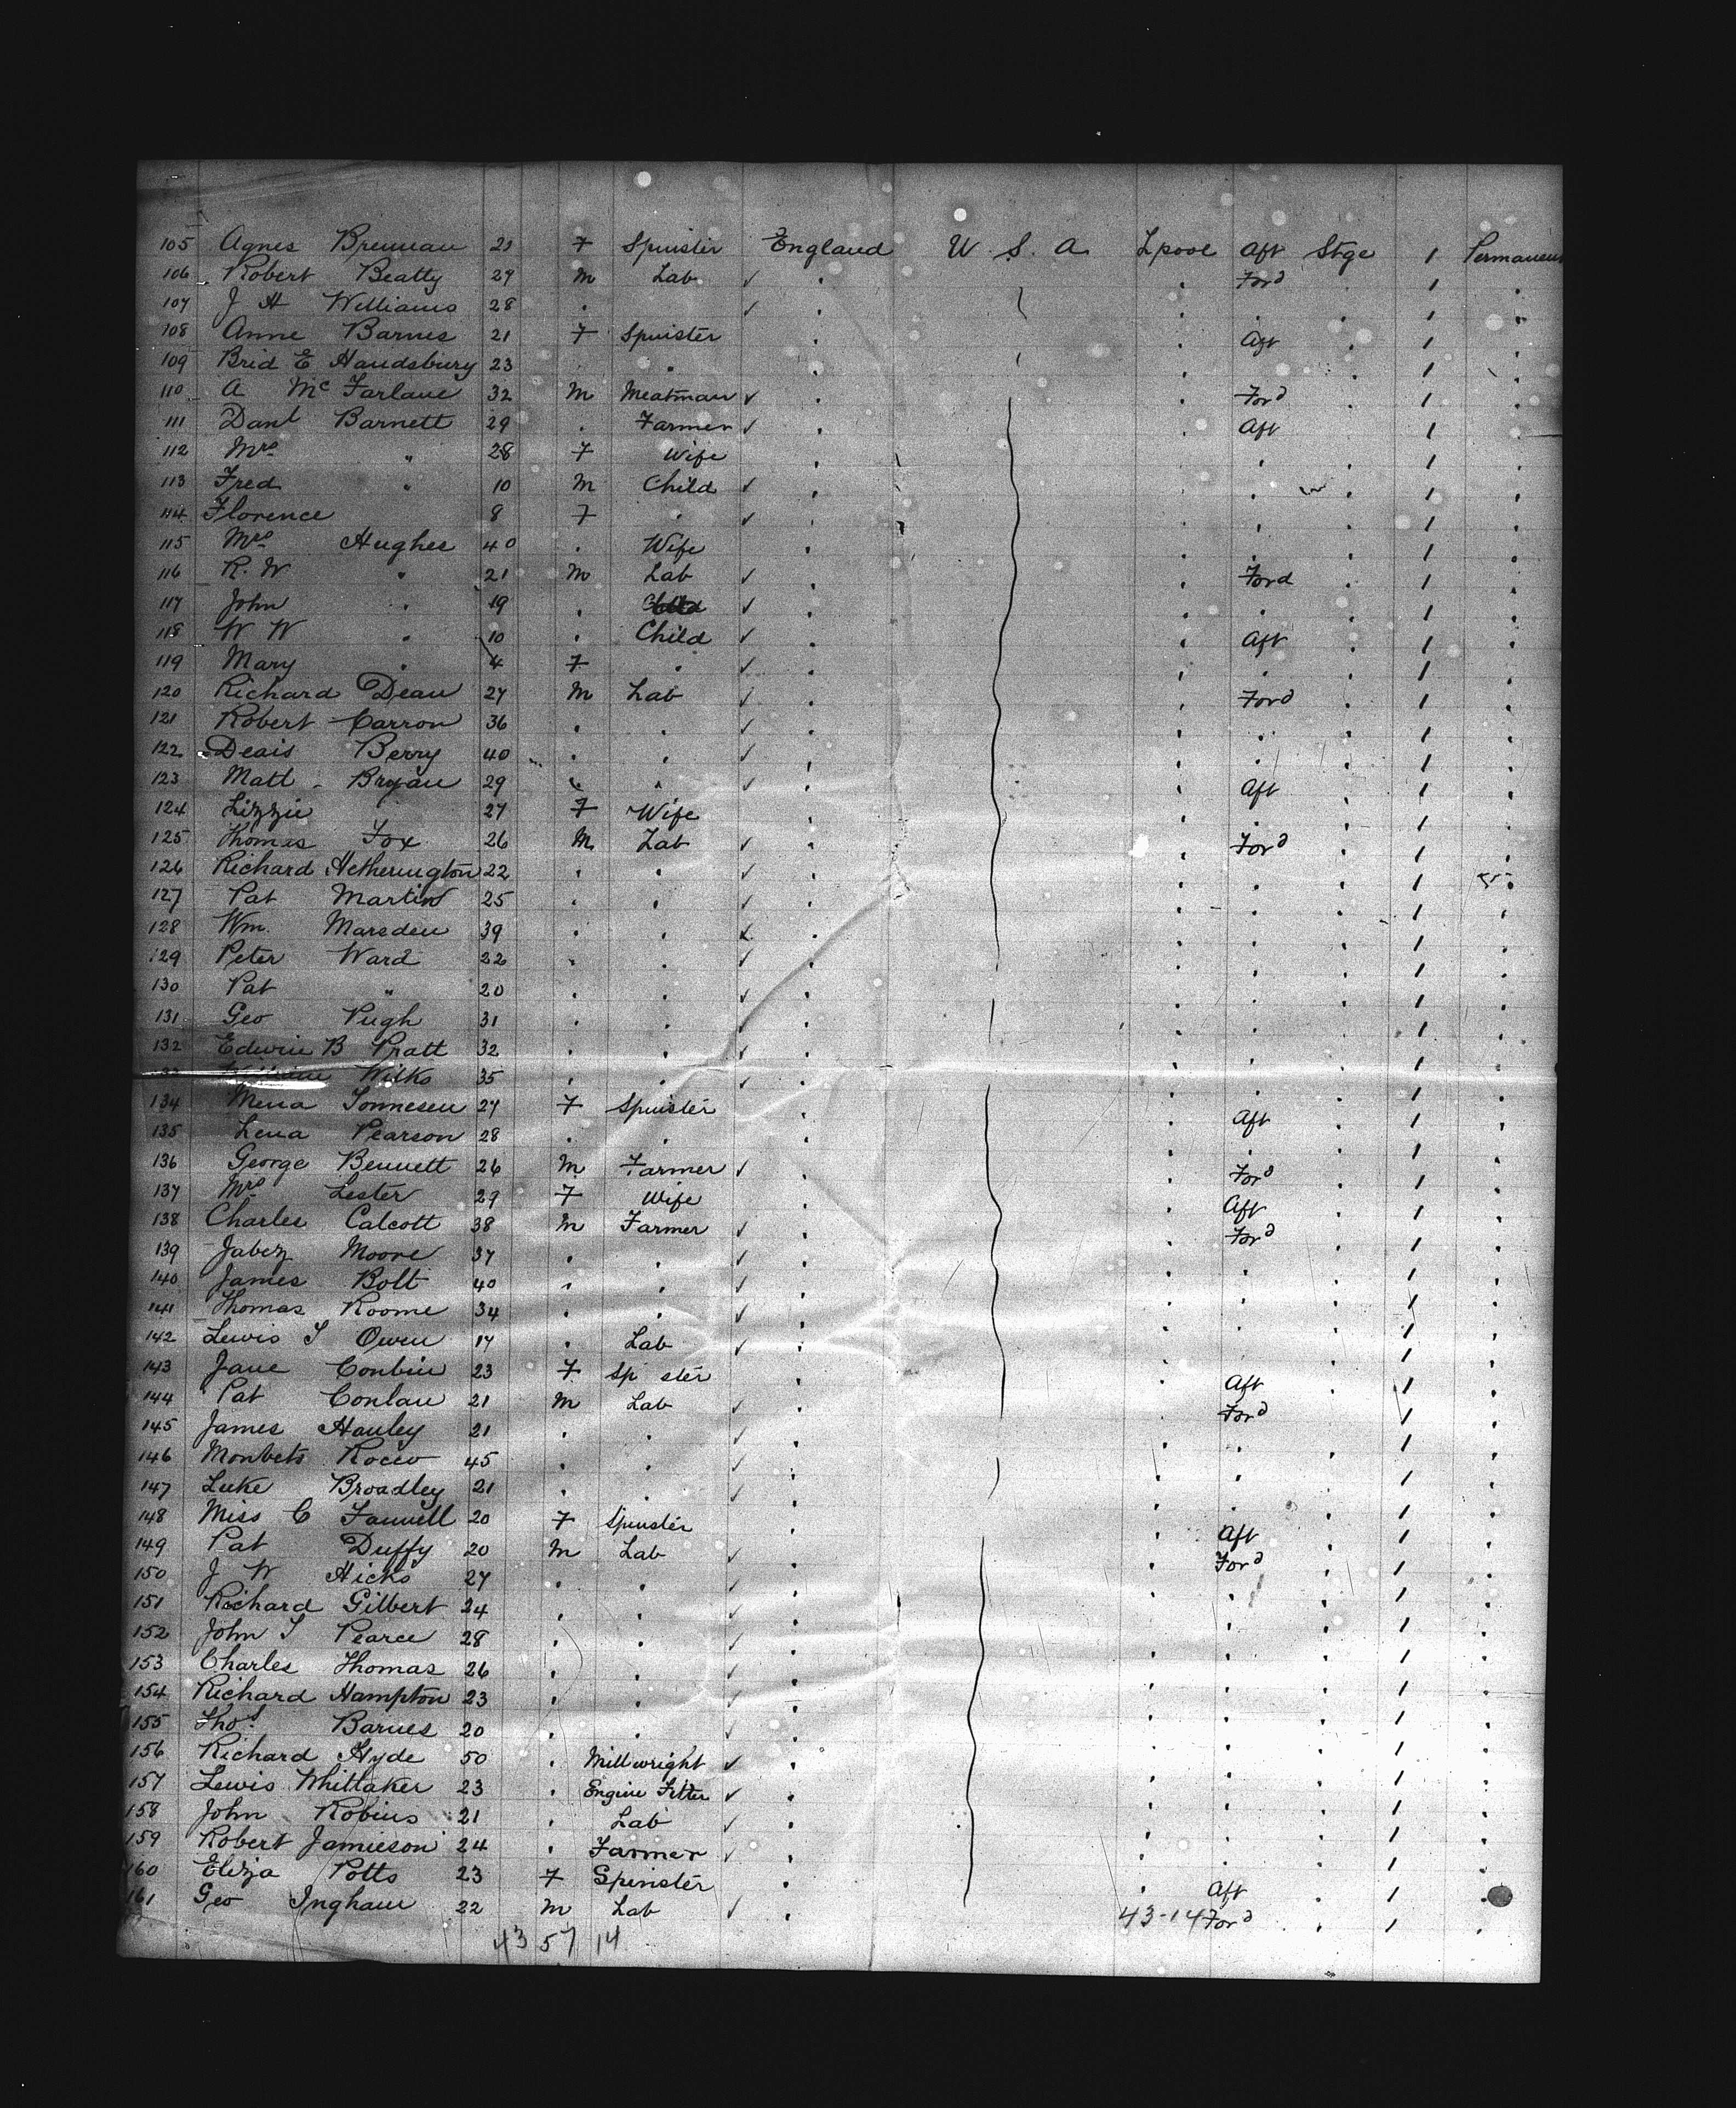 105 Agnes Brennan 21 F Spinster England U. S. A. Lpool Aft Stge 1 Permanent
106 Robert Beatty 27 M Lab ✓ . . Ford . 1 .
107 J H Williams 28 . ✓ . . . . 1 .
108 Anne Barnes 21 F Spinster . . Aft . 1 .
109 Brid E Handsbury 23 . . . . . . 1 .
110 A McFarlane 32 M Meatman ✓ . . Ford . 1 .
111 Danl Barnett 29 . Farmer ✓ . . Aft . 1 .
112 Mrs " 28 F Wife . . . . 1 .
113 Fred " 10 M Child ✓ . . . . 1 .
114 Florence 8 F . ✓ . . . . 1 .
115 Mrs Hughes 40 . Wife . . . . 1 .
116 R. W. " 21 M Lab ✓ . . Ford . 1 .
117 John . 19 . ✓ . . . . 1 .
118 W W . 10 . Child ✓ . . Aft . 1 .
119 Mary . 4 F . ✓ . . . . 1 .
120 Richard Dean 27 M Lab ✓ . . Ford . 1 .
121 Robert Carron 36 . . ✓ . . . . 1 .
122 Deais Berry 40 . . ✓ . . . . 1 .
123 Matt Bryan 29 . . ✓ . . Aft . 1 .
124 Lizzie . 27 F Wife . . . . 1 .
125 Thomas Fox 26 M Lab ✓ . . Ford . 1 .
126 Richard Hetherington 22 . . ✓ . . . . 1 .
127 Pat Martin 25 . . ✓ . . . . 1 .
128 Wm. Marsden 39 . . ✓ . . . . 1 .
129 Peter Ward 22 . . ✓ . . . . 1 .
130 Pat " 20 . . ✓ . . . . 1 .
131 Geo Pugh 31 . . ✓ . . . . 1 .
132 Edwin B Pratt 32 . . ✓ . . . . 1 .
Wilks 35 . . ✓ . . . . 1 .
134 Mena Tonnesen 27 F Spinster . . Aft . 1 .
135 Lena Pearson 28 . . . . . . 1 .
136 George Bennett 26 M Farmer ✓ . . Ford . 1 .
137 Mrs Lester 29 F Wife . . Aft . 1 .
138 Charles Calcott 38 M Farmer ✓ . . Ford . 1 .
139 Jabez Moore 37 . . ✓ . . . . 1 .
140 James Bolt 40 . . ✓ . . . . 1 .
141 Thomas Roome 34 . . ✓ . . . . 1 .
142 Lewis T Owen 17 . Lab ✓ . . . . 1 .
143 Jane Conbin 23 F Sp ster . . Aft . 1 .
144 Pat Conlan 21 M Lab ✓ . . Ford . 1 .
145 James Hanley 21 . . ✓ . . . . 1 .
146 Monbets Rocco 45 . . ✓ . . . . 1 .
147 Luke Broadley 21 . . ✓ . . . . 1 .
148 Miss C Fannell 20 F Spinster . . Aft . 1 .
149 Pat Duffy 20 M Lab ✓ . . Ford . 1 .
150 J W Hicks 27 . . ✓ . . . . 1 .
151 Richard Gilbert 24 . . ✓ . . . . 1 .
152 John T Pearce 28 . . ✓ . . . . 1 .
153 Charles Thomas 26 . . ✓ . . . . 1 .
154 Richard Hampton 23 . . ✓ . . . . 1 .
155 Thos. Barnes 20 . . ✓ . . . . 1 .
156 Richard Hyde 50 . Millwright ✓ . . . . 1 .
157 Lewis Whittaker 23 . Engine Fitter ✓ . . . . 1 .
158 John Robins 21 . Lab ✓ . . . . 1 .
159 Robert Jamieson 24 . Farmer ✓ . . . . 1 .
160 Eliza Potts 23 F Spinster . . Aft . 1 .
161 Geo Ingham 22 M Lab ✓ . 43-14 Ford . 1 .
43 57 14